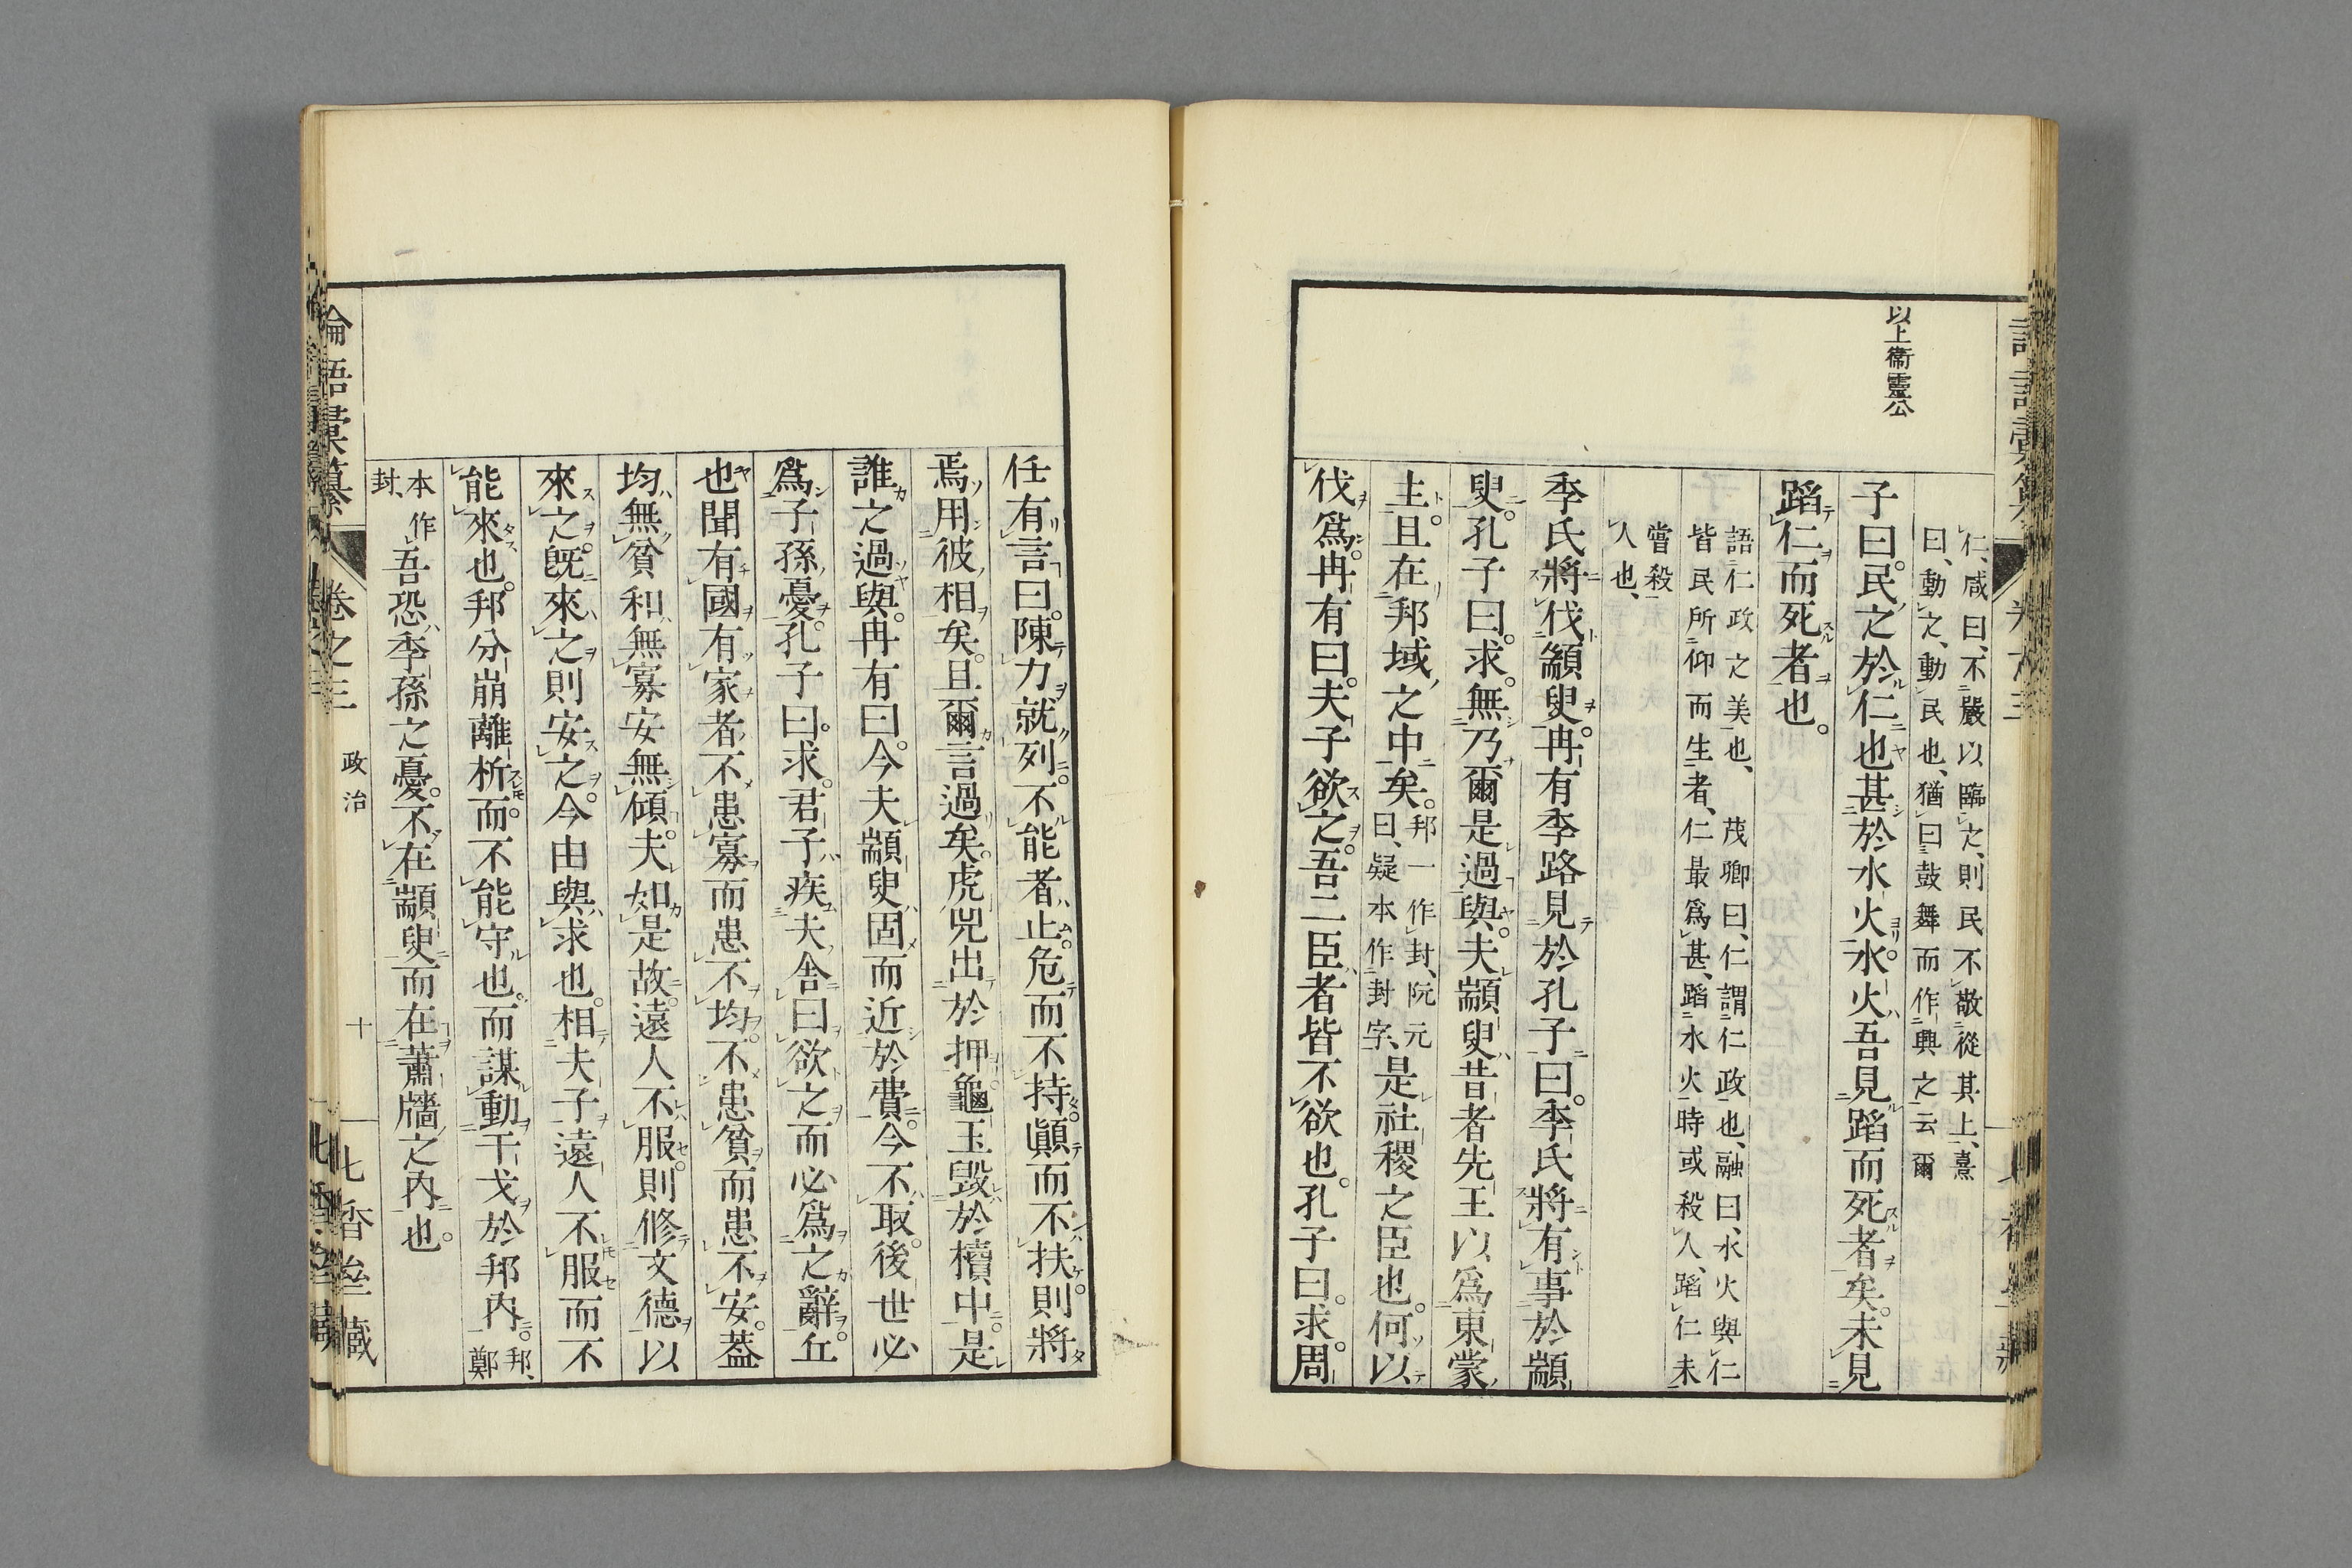 以上衞靈公
仁、咸曰、不嚴以臨之、則民不敬從其上、熹
曰、動之、動民也、猶曰鼓舞而作興之云爾
子曰。民之於仁也甚於水火。水火吾見蹈而死者矣。未見
蹈仁而死者也。
語仁政之美也、茂卿曰、仁謂仁政也、融曰、水火與仁
皆民所仰而生者、仁最爲甚、蹈水火時或殺人、蹈仁未
嘗殺
人也、
季氏將伐顓臾。冉有季路見於孔子曰。季氏將有事於顓
臾。孔子曰。求。無乃爾是過與。夫顓臾昔者先王以爲東蒙
主。且在邦域之中矣。邦一作封、阮元曰、疑本作封字、是社稷之臣也。何以
伐爲。冉有曰。夫子欲之。吾二臣者皆不欲也。孔子曰。求。周
任有言曰。陳力就列。不能者止。危而不持。顚而不扶。則將
焉用彼相矣。且爾言過矣。虎兕出於押。龜玉毀於櫝中。是
誰之過與。冉有曰。今夫顓臾固而近於費。今不取。後世必
爲子孫憂。孔子曰。求。君子疾夫舍曰欲之而必爲之辭。丘
也聞有國有家者。不患寡而患不均。不患貧而患不安。蓋
均無貧。和無寡。安無傾。夫如是故。遠人不服。則修文德以
來之。既來之則安之。今由與求也。相夫子遠人不服而不
能來也。邦分崩離析而。不能守也。而謀動干戈於邦內。邦、鄭
本作封、吾恐季孫之憂。不在顓臾而在蕭牆之內也。
論語彙纂 卷之三 政治 十 七香堂藏